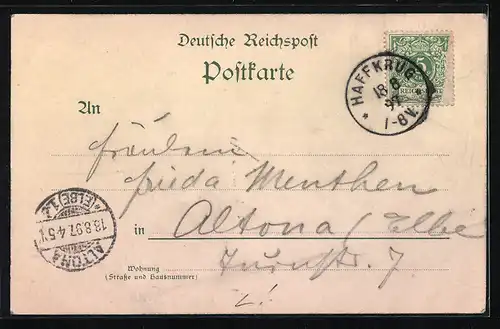 Deutsche Reichspost
Postkarte
5
REICHSPOST
HAFFKRUG
18 8
97
7-8V.
An
Fräulein
Frieda Menthen
in Altona / Elbe
ALTONA
18.8.97. 4-5N
*(ELBE)1.z.
Wohnung
(Straße und Hausnummer)
7